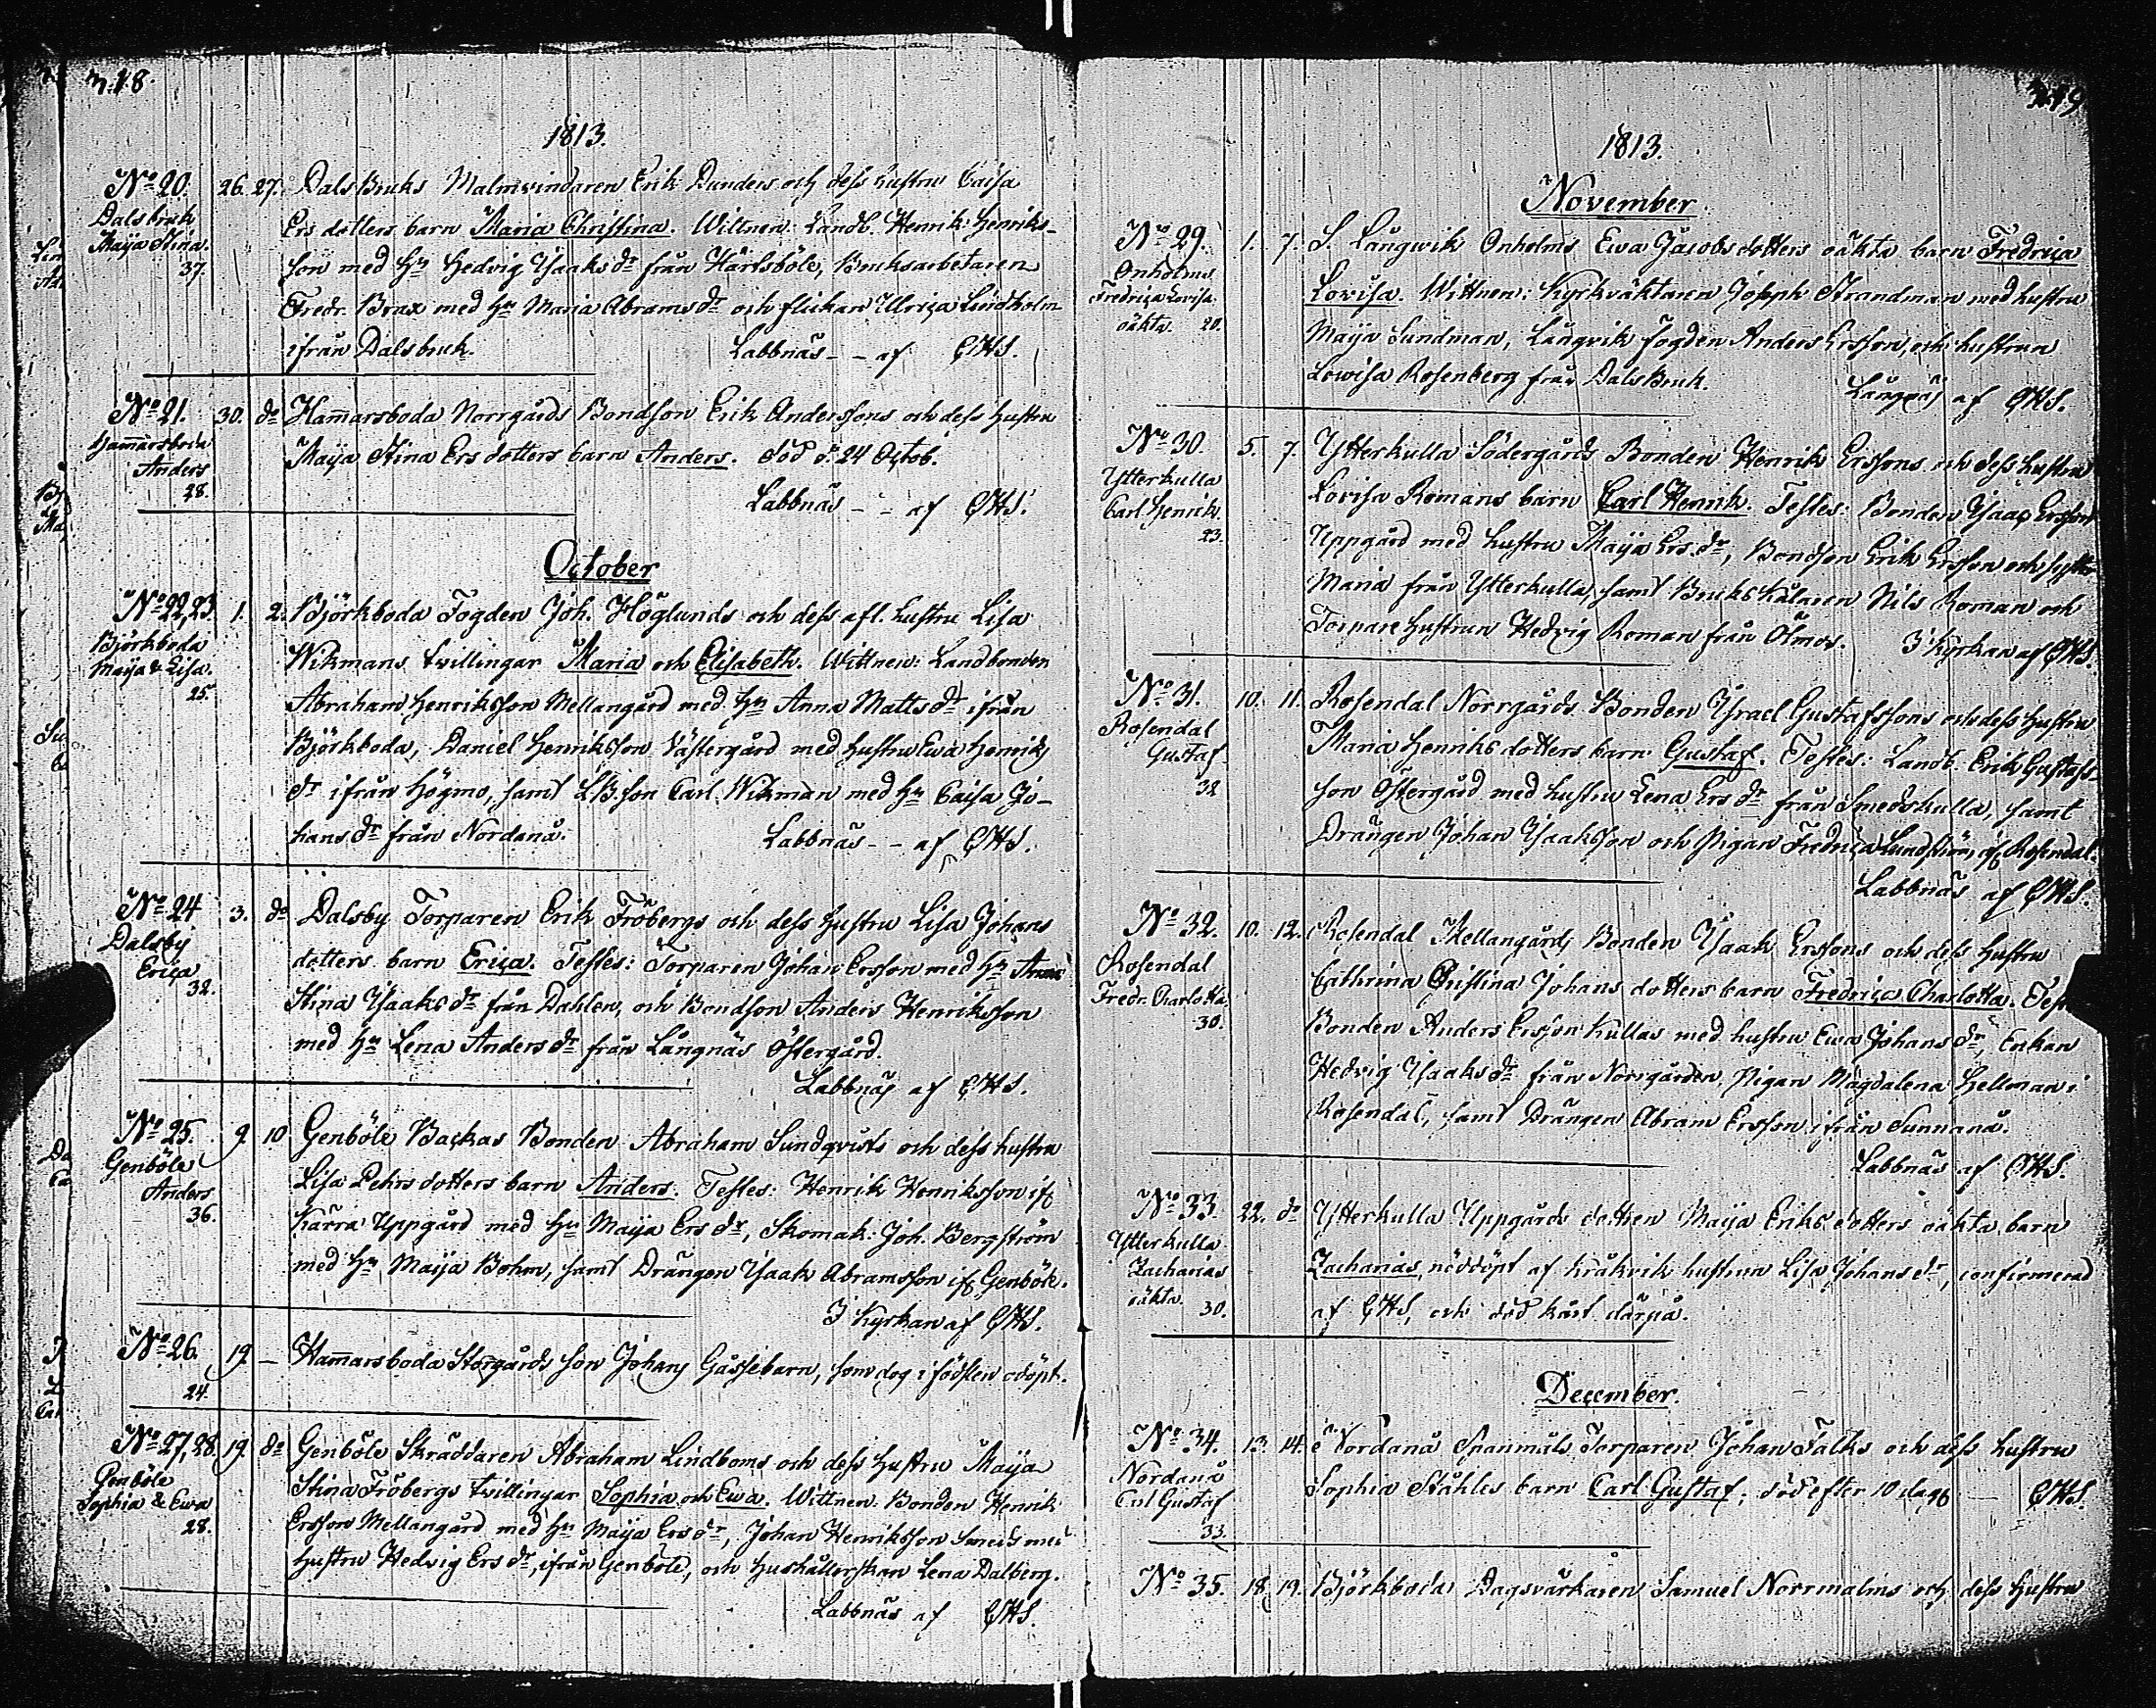 318.
1813.
No 20. 26. 27. Dals Bruks Malmvindaren Erik Dunders och dess hustru Caisa
Dalsbruk Ersdotters barn Maria Christina. Wittnen: Landb. Henrik Henriks-
Maija Stina.
37. son med Hu Hedvig Isaaks dr från Hårlsböle, Bruksarbetaren
Fredr. Brax med Hu Maria Abrams dr och flickan Ulrica Lindholm
ifrån Dalsbruk. Labbnäs - - af GHS.
No 21. 30. do Hammarsboda Norrgårds Bondson Erik Anderssons och dess hustru
Hammarsboda
Anders Maija Stina Ersdotters barn Anders. död d. 24 Octob.
28.
Labbnäs - - af GHS.
October
No 22, 23. 1. 2. Björkboda Fogden Joh. Höglunds och dess afl. hustru Lisa
Björkboda
Maija & Lisa. Wikmans tvillingar Maria och Elisabeth. Wittnen: Landbonden
25.
Abraham Henriksson Mellangård med Hu Anna Matts dr ifrån
Björkboda, Daniel Henriksson Västergård med hustru Ewa Henriks
dr ifrån Högmo, samt LB.son Carl Wikman med Hu Caisa Jo-
hans dr från Nordanå. Labbnäs - - af GHS.
No 24 3. do Dalsby Torparen Erik Fröbergs och dess hustru Lisa Johans
Dalsby
Erica dotters barn Erica. Testes: Torparen Johan Ersson med Hu Anna
32.
Stina Isaaks dr från Dahlen, och Bondson Anders Henriksson
med Hu Lena Anders dr från Långnäs Östergård.
Labbnäs af GHS.
No 25. 9. 10 Genböle Backas Bonden Abraham Sundqvists och dess hustru
Genböle
Anders Lisa Pehrs dotters barn Anders. Testes: Henrik Henriksson if.
36.
Kärra Uppgård med Hu Maija Ers dr, Skomak: Joh. Bergström
med Hu Maija Bohm, samt Drängen Isaak Abramsson if. Genböle.
I Kyrkan af GHS.
No 26. 19. — Hammarsboda Storgårds son Johans Gåssebarn, som dog i födslen odöpt.
24.
No 27, 28. 19. do Genböle Skräddaren Abraham Lindboms och dess hustru Maija
Genböle
Sophia & Ewa Stina Fröbergs tvillingar Sophia och Ewa. Wittnen: Bonden Henrik
28.
Ersson Mellangård med Hu Maija Ers dr, Johan Henriksson Smeds med
hustru Hedvig Ers dr, ifrån Genböle, och Hushållerskan Lena Dalberg.
Labbnäs af GHS.
319
1813.
November
No 29. 1. 7. S. Långwik Onholms Ewa Jacobsdotters oäkta barn Fredrica
Onholms
Fredrica Lovisa. Lovisa. Wittnen: Kyrkväktaren Joseph Strandman med hustru
oäkta. 20.
Maija Sundman, Långvik fogden Anders Ersson, och hustrun
Lowisa Rosenberg från Dals Bruk.
Långnäs af GHS.
No 30. 5. 7. Ytterkulla Södergårds Bonden Henrik Erssons och dess hustru
Ytterkulla
Carl Henrik. Lovisa Romans barn Carl Henrik. Testes: Bonden Isaac Ersson
23.
Uppgård med hustru Maija Ers dr, Bondson Erik Ersson och syster
Maria från Ytterkulla, samt Bruks Kålaren Nils Roman och
Torpare hustrun Hedvig Roman från Ölmos. I Kyrkan af GHS.
No 31. 10. 11. Rosendal Norrgårds Bonden Israel Gustafssons och dess hustru
Rosendal
Gustaf Maria Henriks dotters barn Gustaf. Testes: Landb. Erik Gustafs-
32
son Östergård med hustru Lena Ers dr från Smedskulla, samt
Drängen Johan Isaaksson och Pigan Fredrica Lundström, af Rosendal.
Labbnäs af GHS.
No 32. 10. 12. Rosendal Mellangårds Bonden Isaak Erssons och dess hustru
Rosendal
Fredr. Charlotta Cathrina Christina Johans dotters barn Fredrica Charlotta. Test
30.
Bonden Anders Ersson Kullas med hustru Ewa Johans dr, Enkan
Hedvig Isaaks dr från Norrgården, Pigan Magdalena Hellman i
Rosendal, samt Drängen Abram Ersson ifrån Sunnanå.
Labbnäs af GHS.
No 33 22. do Ytterkulla Uppgårds dottren Maija Eriks dotters oäkta barn
Ytterkulla
Zacharias Zacharias, nöddöpt af Kråkvik hustrun Lisa Johans dr, confirmerad
oäkta. 30.
af GHS, och död kårt därpå.
December.
No 34. 13. 14. Nordanå Spanmåls Torparen Johan Falks och dess hustru
Nordanå
Carl Gustaf Sophia Ståhles barn Carl Gustaf; död efter 10 dagar — GHS.
33.
No 35. 18. 19. Björkboda Dagsvärkaren Samuel Norrmalms och dess hustru